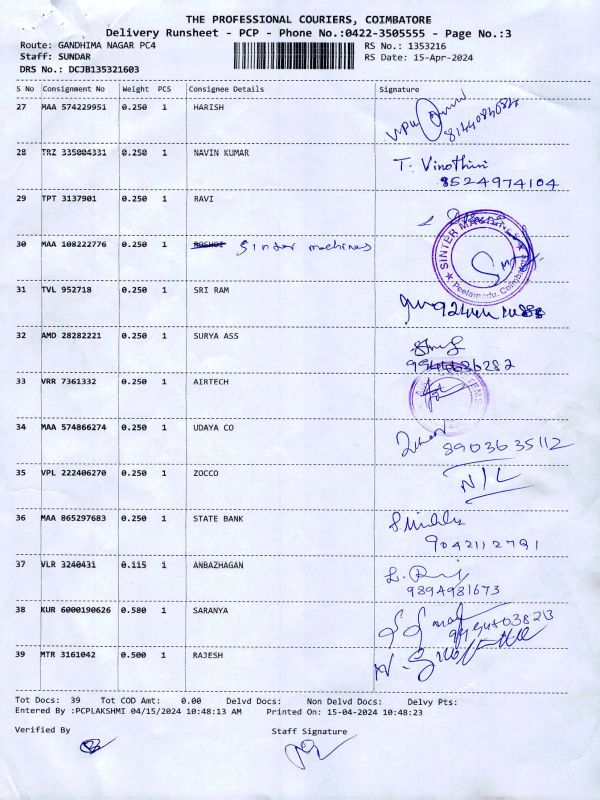 THE PROFESSIONAL COURIERS, COIMBATORE
Delivery Runsheet - PCP - Phone No.:0422-3505555 - Page No.:3
Route: GANDHIMA NAGAR PC4 RS No.: 1353216
Staff: SUNDAR RS Date: 15-Apr-2024
DRS No.: DCJB135321603
S No Consignment No Weight PCS Consignee Details Signature
27 MAA 574229951 0.250 1 HARISH
28 TRZ 335004331 0.250 1 NAVIN KUMAR T. Vinothini
8524974104
29 TPT 3137901 0.250 1 RAVI
30 MAA 108222776 0.250 1 Sinter machines
SINTER
Peelamedu, Coimbatore
31 TVL 952718 0.250 1 SRI RAM
32 AMD 28282221 0.250 1 SURYA ASS
33 VRR 7361332 0.250 1 AIRTECH
34 MAA 574866274 0.250 1 UDAYA CO
8903635112
35 VPL 222406270 0.250 1 ZOCCO N/L
36 MAA 865297683 0.250 1 STATE BANK
9042112791
37 VLR 3240431 0.115 1 ANBAZHAGAN
9894981673
38 KUR 6000190626 0.580 1 SARANYA
39 MTR 3161042 0.500 1 RAJESH
Tot Docs: 39 Tot COD Amt: 0.00 Delvd Docs: Non Delvd Docs: Delvy Pts:
Entered By :PCPLAKSHMI 04/15/2024 10:48:13 AM Printed On: 15-04-2024 10:48:23
Verified By Staff Signature